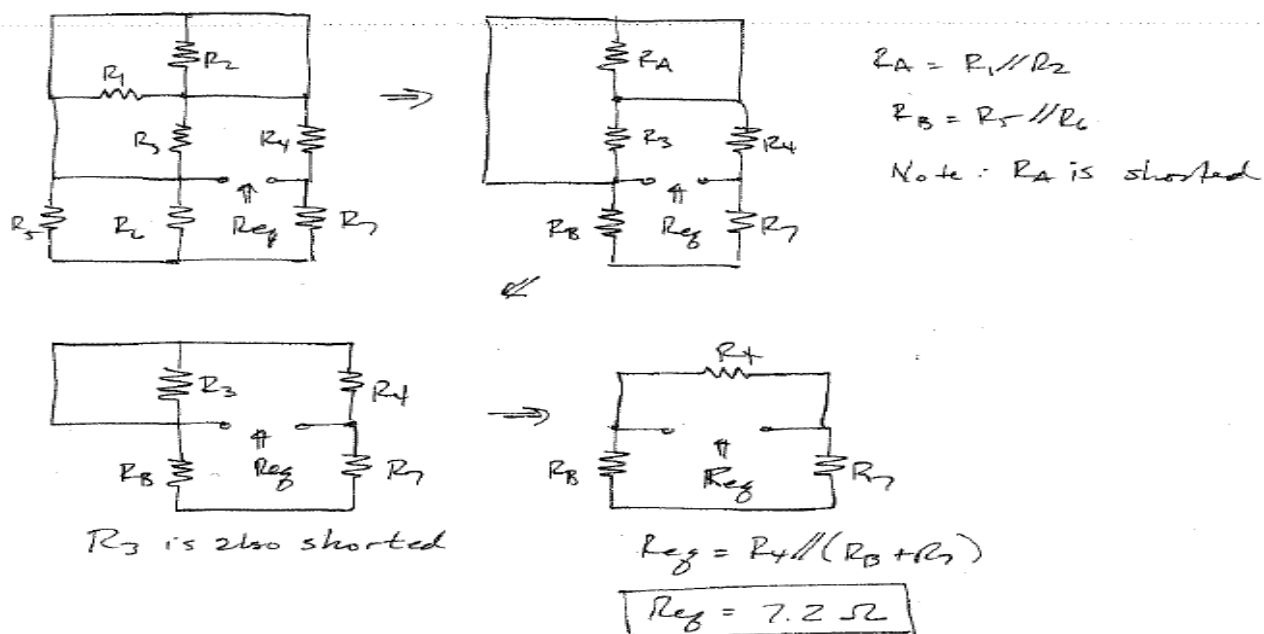 R1
R2
R3
R4
R5
R6
Req
R7
⇒
RA
R3
R4
RB
Req
R7
RA = R1//R2
RB = R5//R6
Note: RA is shorted
R3
R4
RB
Req
R7
R3 is also shorted
⇒
R4
RB
Req
R7
Req = R4//(RB+R7)
Req = 7.2 Ω